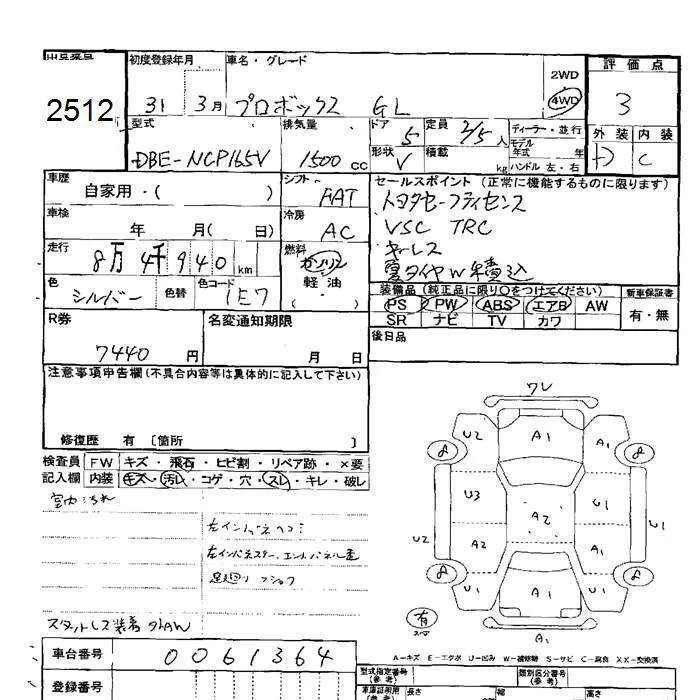 初度登録年月 車名・グレード 評価点
2512
31 3月 プロボックス GL 2WD 4WD 3
型式 排気量 ドア 5 定員 2/5人 ディーラー・並行
モデル年式 年
外装 内装
DBE-NCP165V 1500cc 形状 V 積載 kg ハンドル 左・右 D C
車歴 自家用・( ) シフト FAT セールスポイント (正常に機能するものに限ります)
トヨタセーフティセンス
車検 年 月( 日) 冷房 AC VSC TRC
キーレス
走行 8万4千940km 燃料 ガソリン 夏タイヤW積込
軽油
( )
装備品 (純正品に限り○をつけてください) 新車保証書
色 シルバー 色替 色コード 1E7 PS PW ABS エアB AW 有・無
SR ナビ TV カワ
R券 名変通知期限 後日品
7440円 月 日
注意事項申告欄(不具合内容等は具体的に記入して下さい)
ワレ
修復歴 有 [箇所 ]
U2 A1 A1
検査員 FW キズ・飛石・ヒビ割・リペア跡・×要
8 8
記入欄 内装 キズ・汚レ・コゲ・穴・スレ・キレ・破レ
室内汚れ
U3 U1
左インパネヘコミ A2 U1
U2 A2 A1
8 8
U1 A1 U1
有 スマ
スタットレス装着 外AW A1
A-キズ E-エクボ U-凹み W-補修跡 S-サビ C-腐食 XX-交換済
車台番号 0061364 型式指定番号(参考) 類別区分番号(参考)
登録番号 長さ 幅 高さ